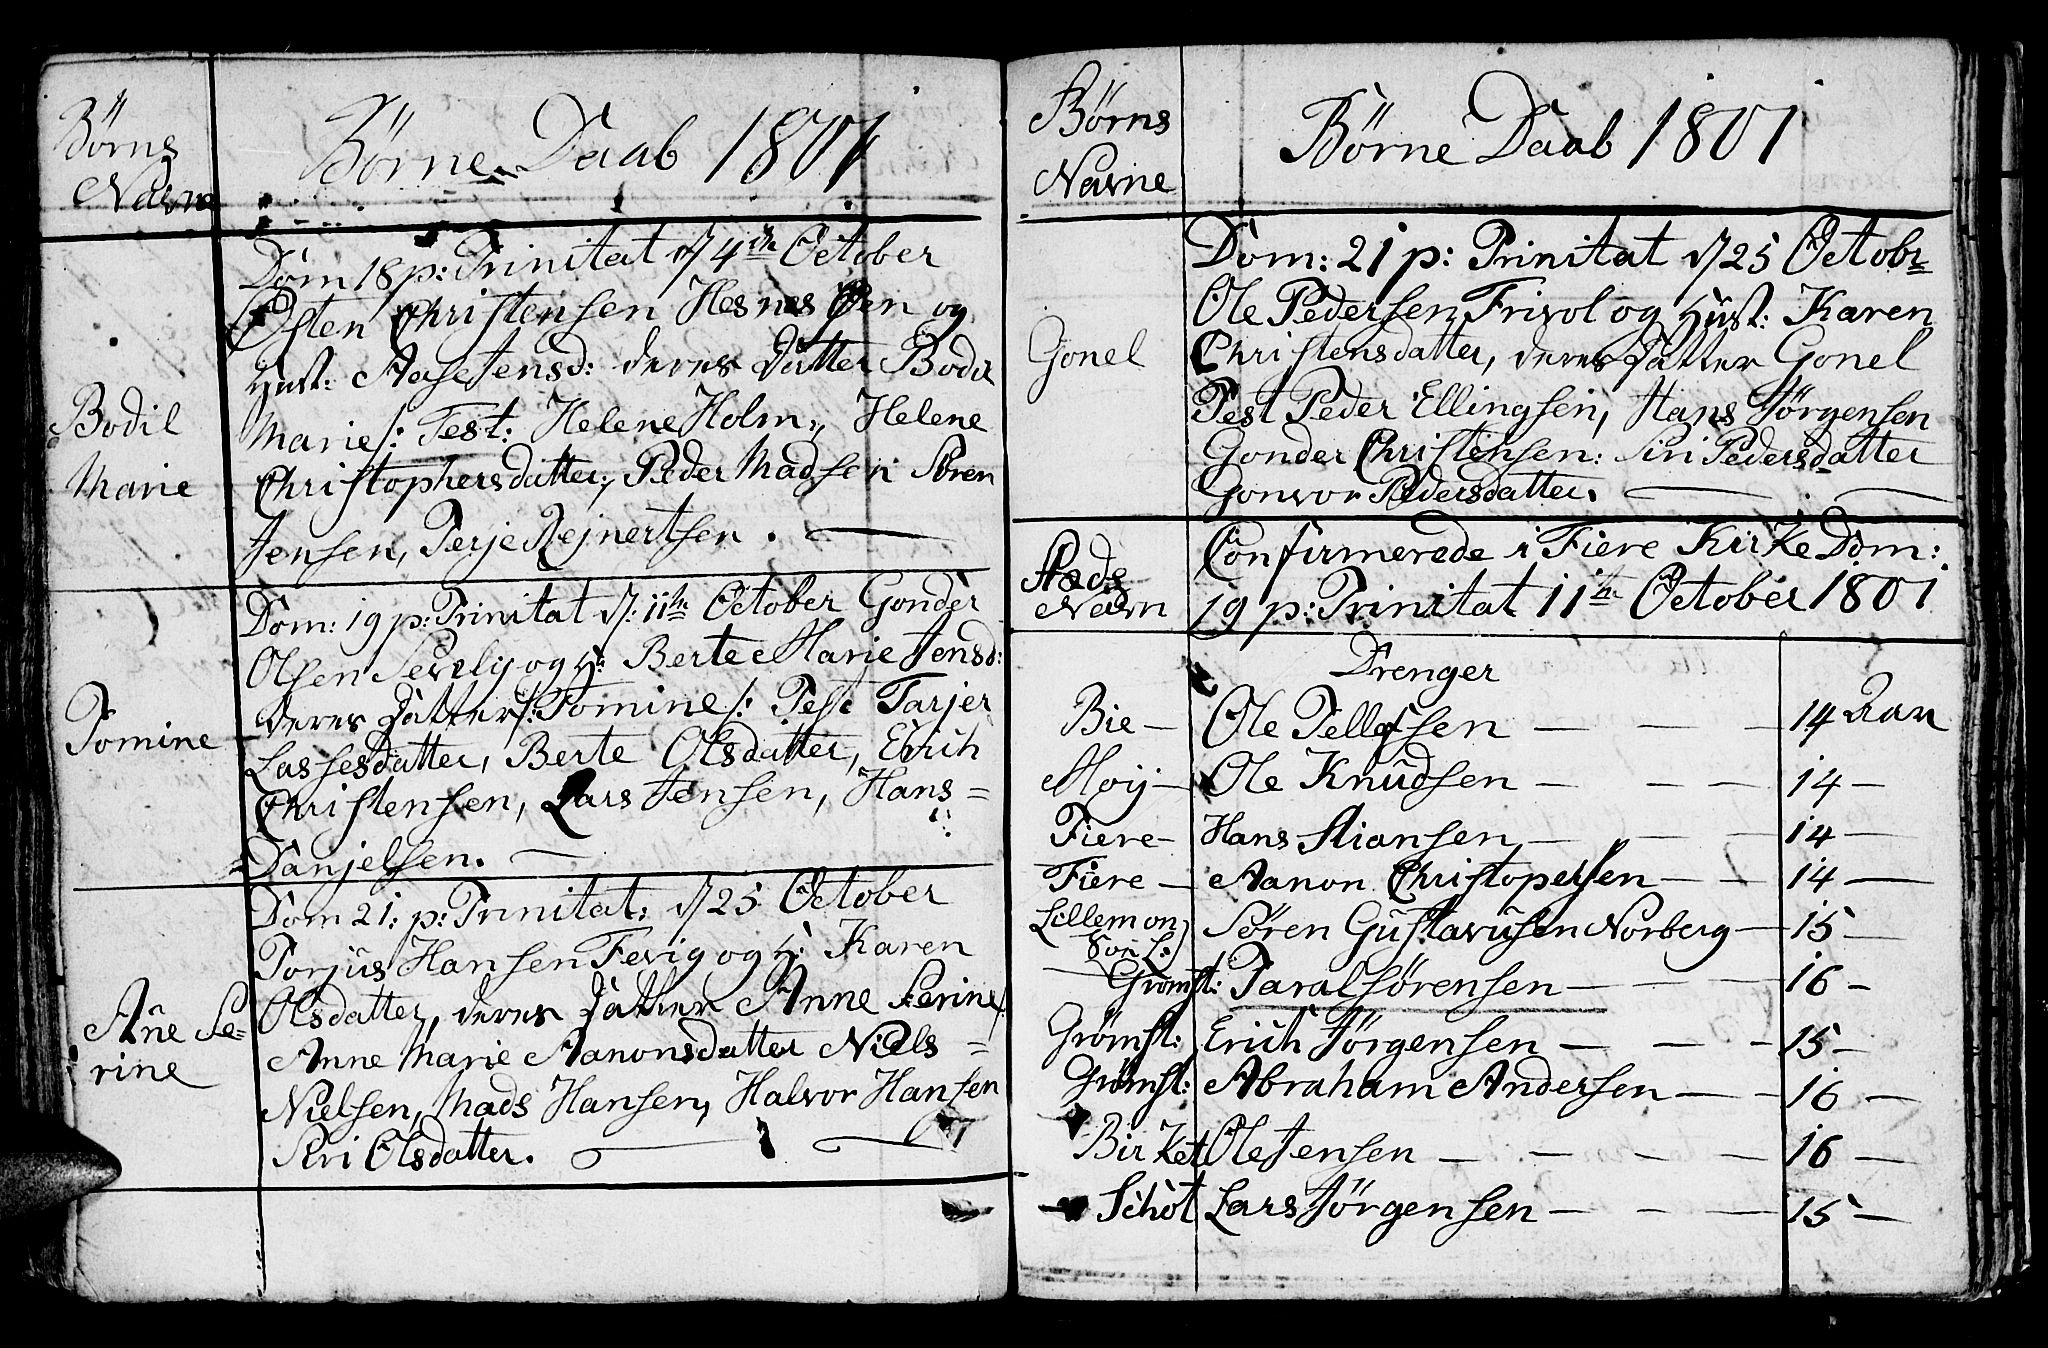 Börns
Navne
Börne Daab 1801
Dom 18 p: Trinitat d/ 4de October
Osten Christensen Hesnes Øen og
Hust: Aase Jensd: deres Datter Bodil
Marie /: Test: Helene Holm, Helene
Christophersdatter, Peder Madsen Sören
Jensen, Terje Rejnertsen.
Bodil
Marie
Dom: 19 p: Trinitat d/: 11te October Gonder
Olsen Sevely og H: Berte Marie Jensd:
deres Datter /: Tomine /: Test Tarjer
Lassesdatter, Berte Olsdatter, Erich
Christensen, Lars Jensen, Hans=
Danjelsen.
Tomine
Dom 21: p: Trinitat: d/ 25 October
Torjus Hansen Fevig og H: Karen
Olsdatter, deres Datter Anne Serine/
Anne Marie Aanonsdatter Niels=
Nielsen, Mads Hansen, Halvor Hansen
Siri Olsdatter.
Añe Se=
rine
Börns
Navne
Börne Daab 1801
Dom: 21 p: Trinitat d/ 25 Octobr
Ole Pedersen Frivol og Hust: Karen
Christensdatter, deres Datter Gonel
Test Peder Ellingsen, Hans Jörgensen
Gonder Christensen: Siri Pedersdatter
Gonvor Pedersdatter.
Gonel
Stæds
Navn
Confirmerede i Fiere Kirke Dom:
19 p: Trinitat 11te October 1801
Drenger
Bie — Ole Tellefsen — — — 14 Aar
Moij — Ole Knudsen — — — 14 —
Fiere — Hans Stiansen — — — 14 —
Fiere — Aanon Christopersen — — 14 —
Lillemon Sören Gustavusen Norberg — 15 —
Gromst: Taral Sörensen — — — 16 —
Grömst: Erich Jörgensen — — — 15 —
Grömst: Abraham Andersen — — 16 —
Birket Ole Jensen — — — — 16 —
Schot Lars Jörgensen — — — 15 —